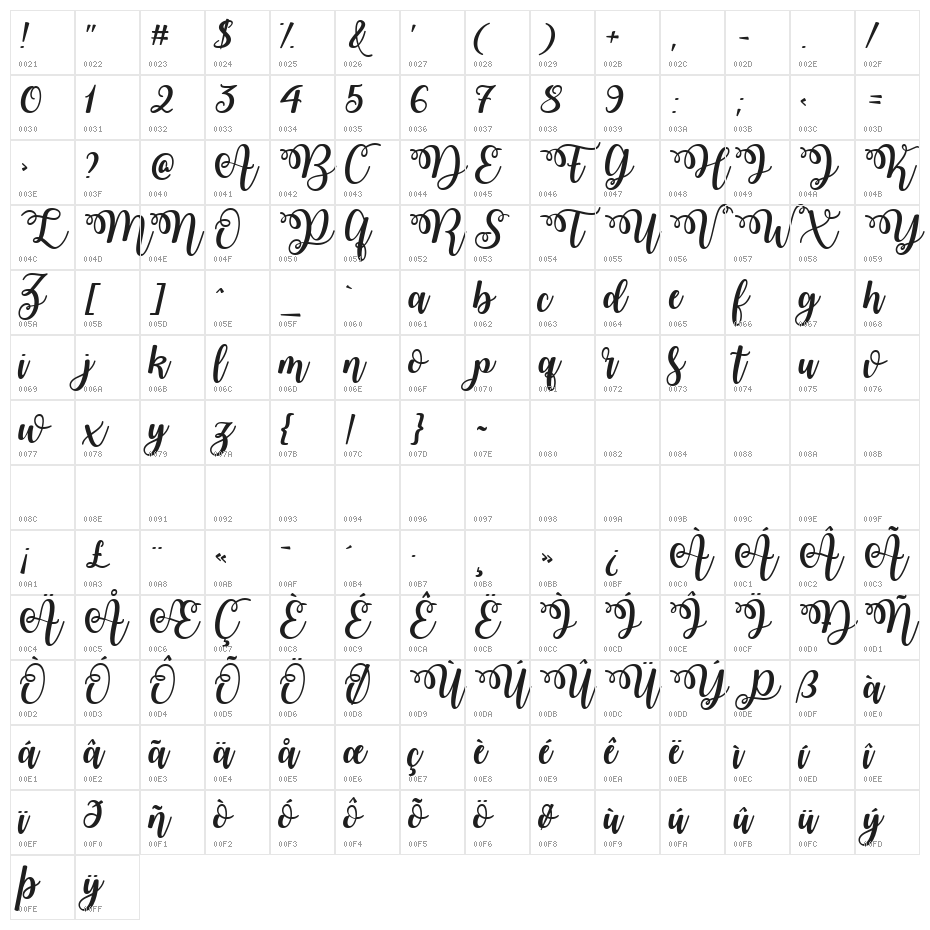 ! " # $ % & ' ( ) + , - . /
0021 0022 0023 0024 0025 0026 0027 0028 0029 002B 002C 002D 002E 002F
0 1 2 3 4 5 6 7 8 9 : ; ‹ =
0030 0031 0032 0033 0034 0035 0036 0037 0038 0039 003A 003B 003C 003D
› ? @ A B C D E F G H I J K
003E 003F 0040 0041 0042 0043 0044 0045 0046 0047 0048 0049 004A 004B
L M N O P Q R S T U V W X Y
004C 004D 004E 004F 0050 0051 0052 0053 0054 0055 0056 0057 0058 0059
Z [ ] ^ _ ` a b c d e f g h
005A 005B 005D 005E 005F 0060 0061 0062 0063 0064 0065 0066 0067 0068
i j k l m n o p q r s t u v
0069 006A 006B 006C 006D 006E 006F 0070 0071 0072 0073 0074 0075 0076
w x y z { | } ~
0077 0078 0079 007A 007B 007C 007D 007E 0080 0082 0084 0088 008A 008B
008C 008E 0091 0092 0093 0094 0096 0097 0098 009A 009B 009C 009E 009F
¡ £ ¨ « ¯ ´ · ¸ » ¿ À Á Â Ã
00A1 00A3 00A8 00AB 00AF 00B4 00B7 00B8 00BB 00BF 00C0 00C1 00C2 00C3
Ä Å Æ Ç È É Ê Ë Ì Í Î Ï Ð Ñ
00C4 00C5 00C6 00C7 00C8 00C9 00CA 00CB 00CC 00CD 00CE 00CF 00D0 00D1
Ò Ó Ô Õ Ö Ø Ù Ú Û Ü Ý Þ ß à
00D2 00D3 00D4 00D5 00D6 00D8 00D9 00DA 00DB 00DC 00DD 00DE 00DF 00E0
á â ã ä å æ ç è é ê ë ì í î
00E1 00E2 00E3 00E4 00E5 00E6 00E7 00E8 00E9 00EA 00EB 00EC 00ED 00EE
ï ð ñ ò ó ô õ ö ø ù ú û ü ý
00EF 00F0 00F1 00F2 00F3 00F4 00F5 00F6 00F8 00F9 00FA 00FB 00FC 00FD
þ ÿ
00FE 00FF